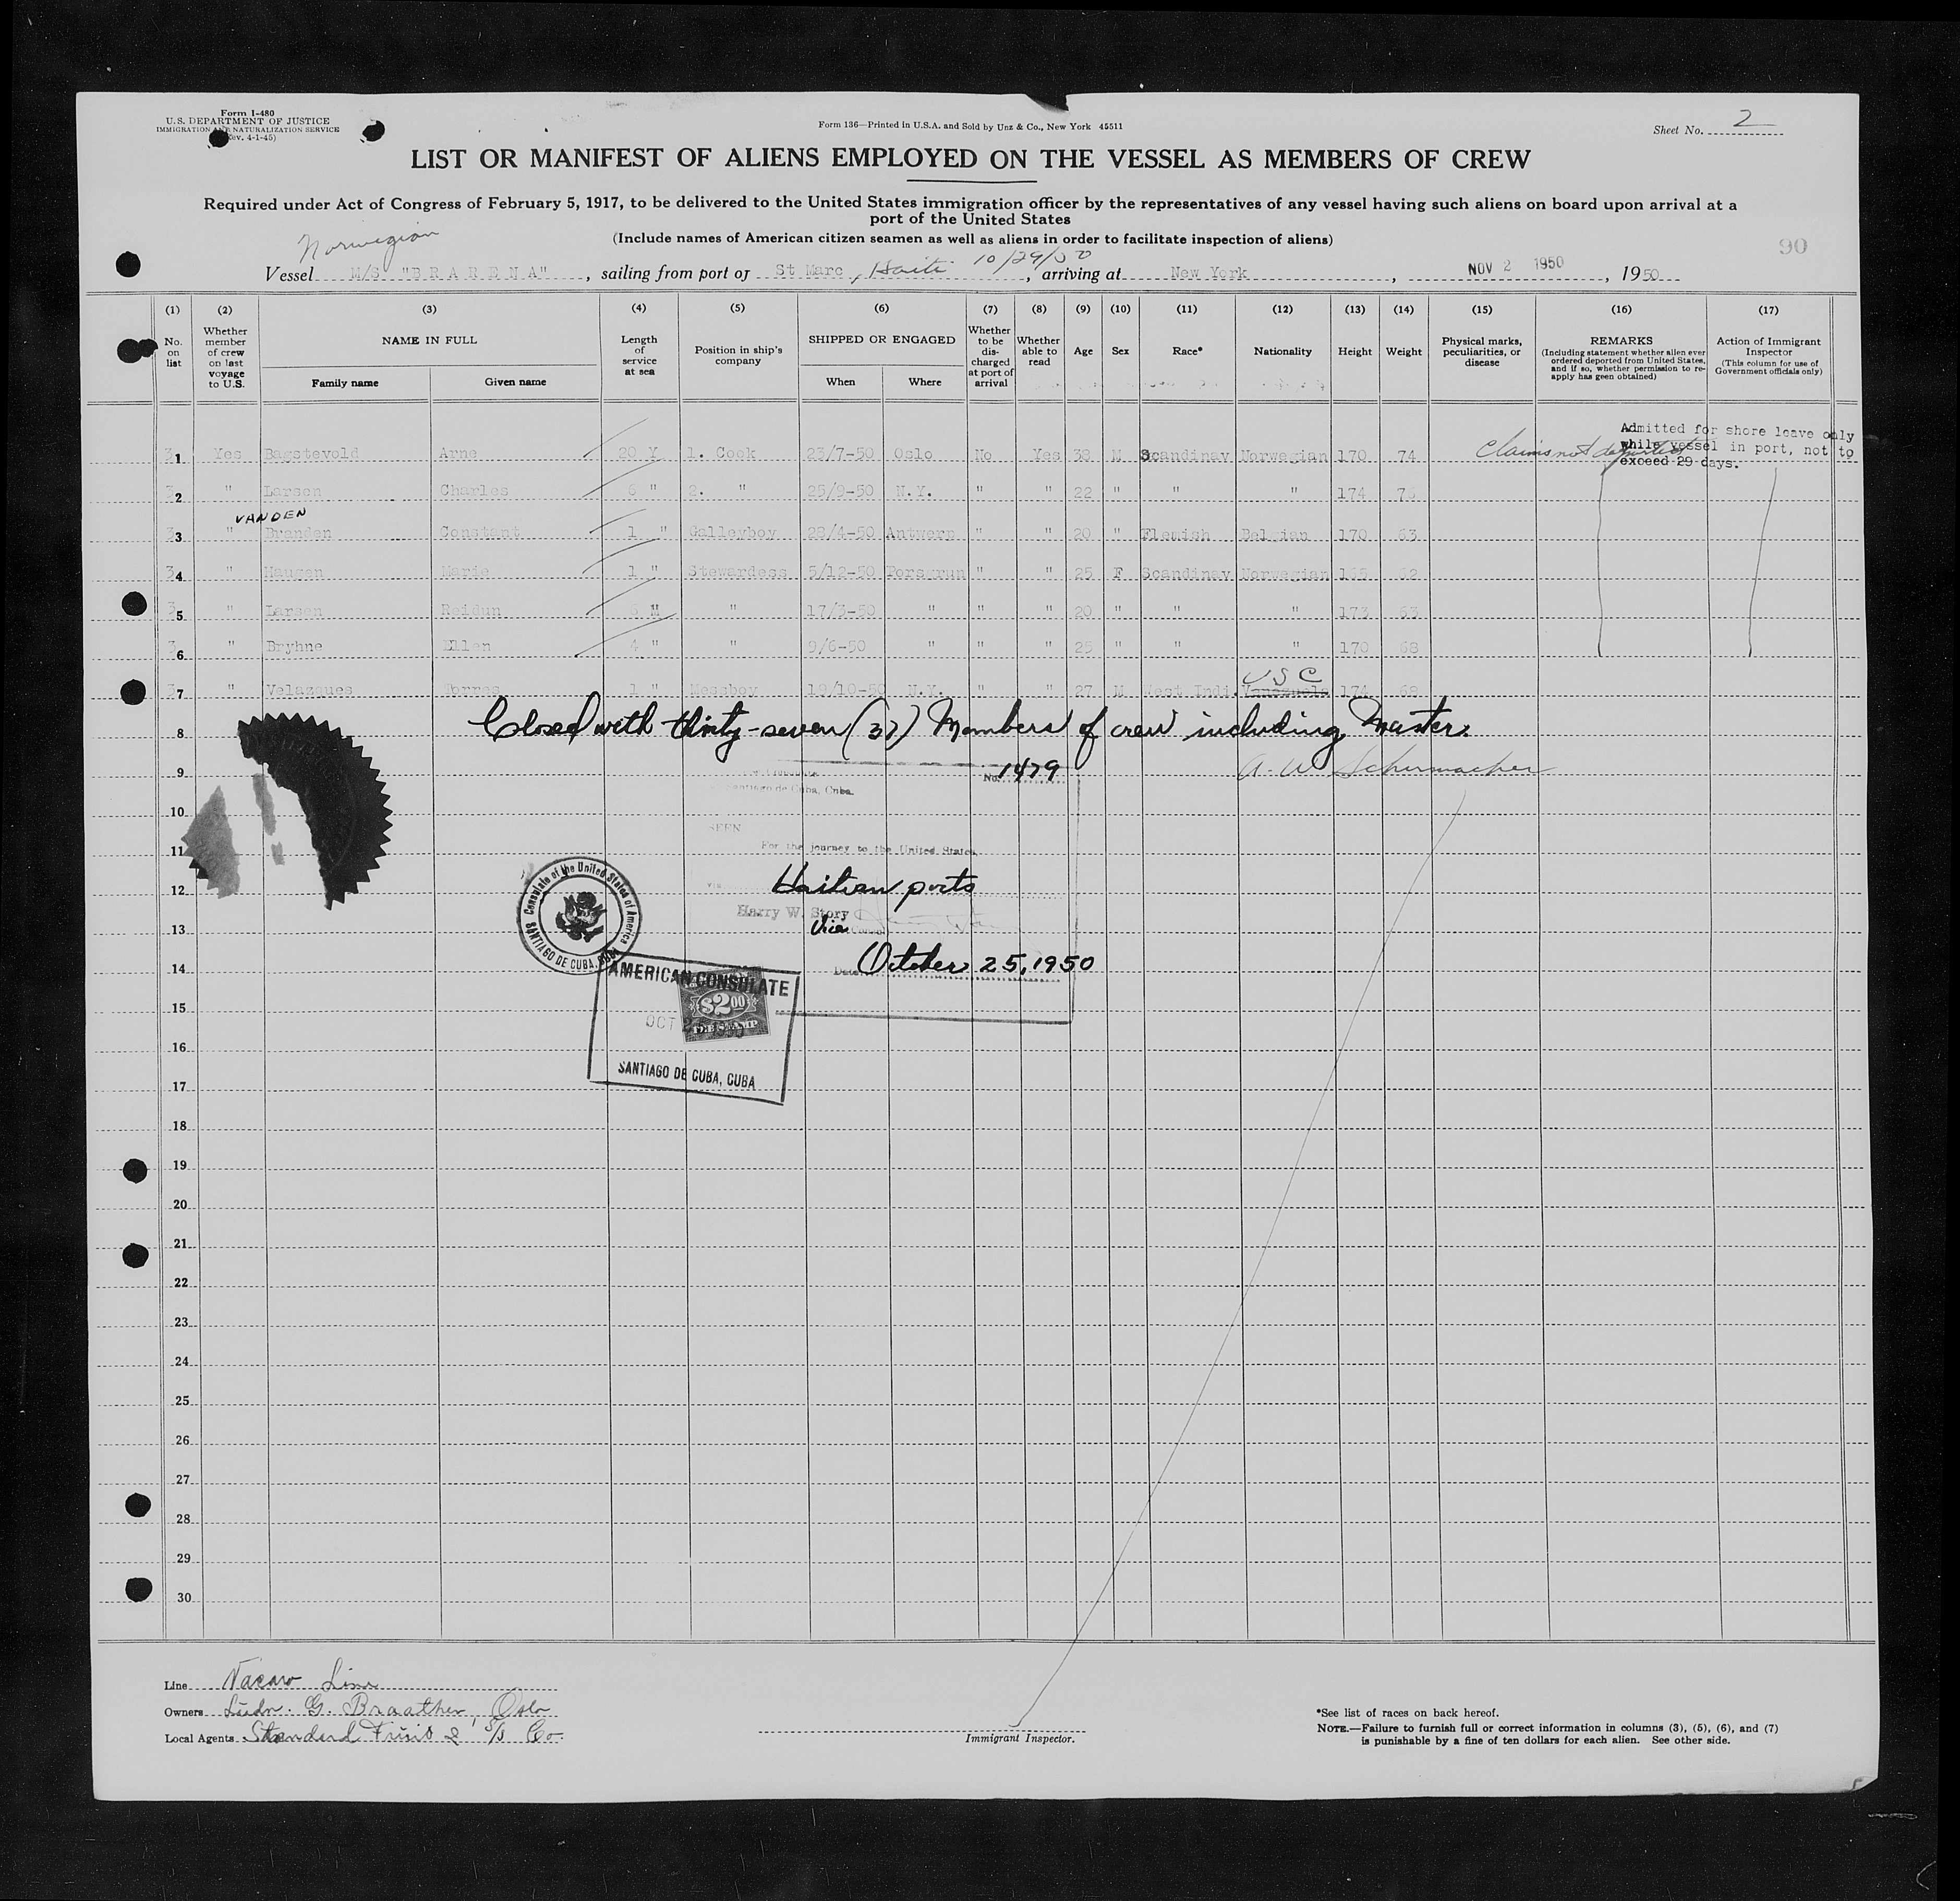 Form I-480
U.S. DEPARTMENT OF JUSTICE
IMMIGRATION AND NATURALIZATION SERVICE
(Rev. 4-1-45)
Form 136—Printed in U.S.A. and Sold by Unz & Co., New York 45511
Sheet No. 2
LIST OR MANIFEST OF ALIENS EMPLOYED ON THE VESSEL AS MEMBERS OF CREW
Required under Act of Congress of February 5, 1917, to be delivered to the United States immigration officer by the representatives of any vessel having such aliens on board upon arrival at a
port of the United States
(Include names of American citizen seamen as well as aliens in order to facilitate inspection of aliens)
90
Norwegian
Vessel M/S "BRARENA", sailing from port of St Marc, Haiti 10/29/50, arriving at New York, NOV 2 1950, 1950
(1) (2) (3) (4) (5) (6) (7) (8) (9) (10) (11) (12) (13) (14) (15) (16) (17)
No. on list
Whether member of crew on last voyage to U.S.
NAME IN FULL
Family name
Given name
Length of service at sea
Position in ship's company
SHIPPED OR ENGAGED
When
Where
Whether to be discharged at port of arrival
Whether able to read
Age
Sex
Race*
Nationality
Height
Weight
Physical marks, peculiarities, or disease
REMARKS
(Including statement whether alien ever ordered deported from United States, and if so, whether permission to re-apply has geen obtained)
Action of Immigrant Inspector
(This column for use of Government officials only)
Admitted for shore leave only
while vessel in port, not to
exceed 29 days.
31 Yes Bagstevold Arne 20 Y 1. Cook 23/7-50 Oslo No Yes 38 M Scandinav Norwegian 170 74 Claims not deported
32 " Larsen Charles 6 " 2. " 25/9-50 N.Y. " " 22 " " " 174
VANDEN
33 " Branden Constant 1 " Galleyboy 28/4-50 Antwerp " " 20 " Flemish Belgian 170 63
34 " Haugen Marie 1 " Stewardess 5/12-50 Porsgrun " " 25 F Scandinav Norwegian
35 " Larsen Reidun M " 17/3-50 " " " 20 " " " 173 63
36 " Bryhne Ellen 4 " " 9/6-50 " " " 25 " " " 170 68
USC
37 " Velazques Torres 1 " Messboy 19/10-50 N.Y. " " 27 M West Indi. Venezuela 174 68
Closed with thirty-seven (37) Members of crew including Master.
A. W. Schermacher
8
9
10
11
12
13
14
15
16
17
18
19
20
21
22
23
24
25
26
27
28
29
30
No. 1479
Santiago de Cuba, Cuba.
SEEN
For the journey to the United States
via Haitian ports
Harry W. Story
Vice Consul
Date October 25, 1950
Consulate of the United States of America
SANTIAGO DE CUBA, CUBA
AMERICAN CONSULATE
$2.00
FEE STAMP
SANTIAGO DE CUBA, CUBA
Line Vacaro Line
Owners Ludv. G. Braathen, Oslo
Local Agents Standard Fruit & S/S Co.
Immigrant Inspector.
*See list of races on back hereof.
NOTE.—Failure to furnish full or correct information in columns (3), (5), (6), and (7)
is punishable by a fine of ten dollars for each alien. See other side.